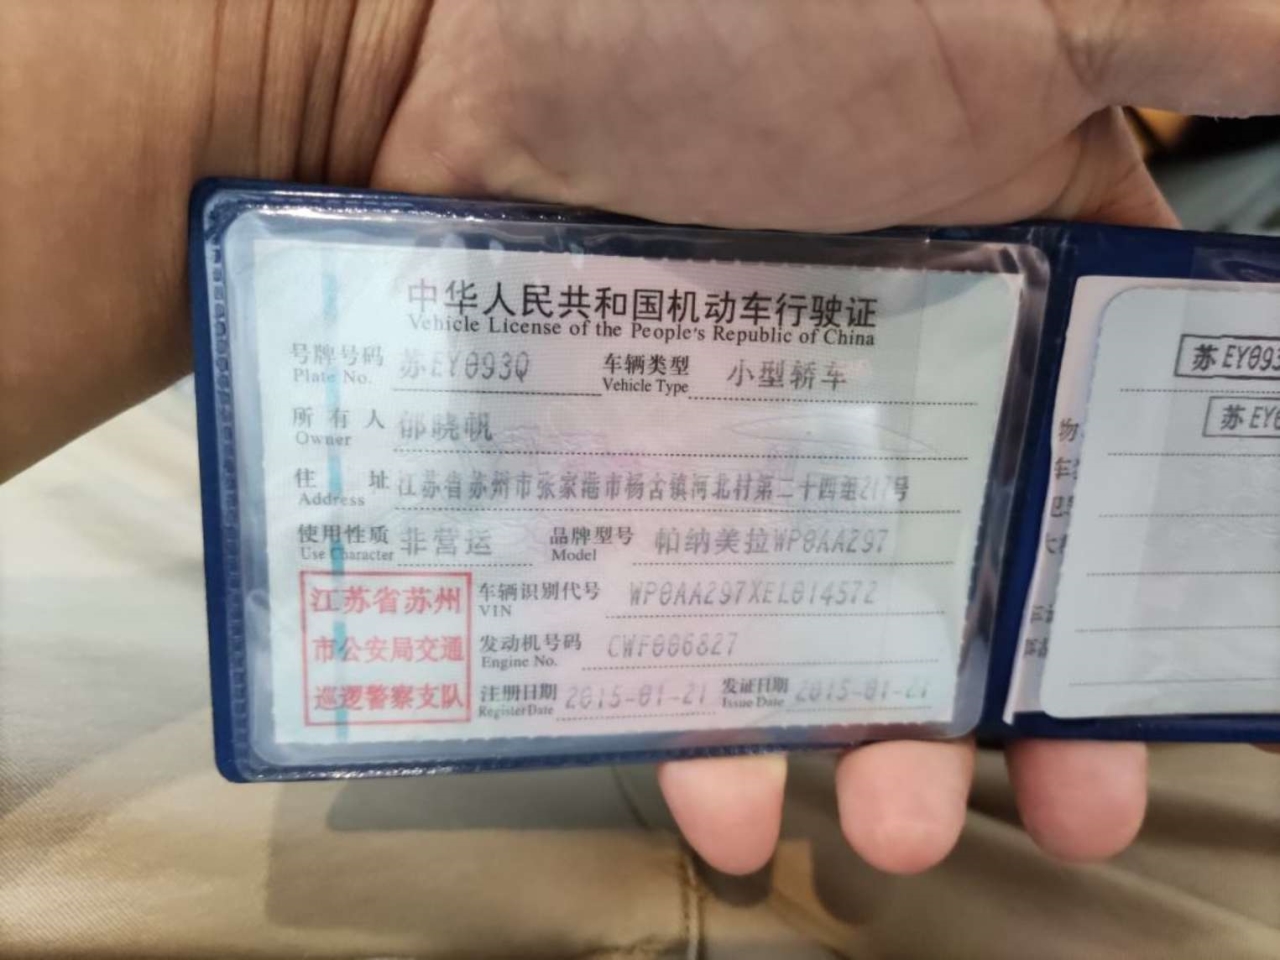 中华人民共和国机动车行驶证
Vehicle License of the People's Republic of China
号牌号码 苏EY093Q 车辆类型 小型轿车
Plate No. Vehicle Type
所有人 邰晓帆
Owner
住址 江苏省苏州市张家港市杨舍镇河北村第二十四组217号
Address
使用性质 非营运 品牌型号 帕纳美拉WP0AA297
Use Character Model
江苏省苏州
市公安局交通
巡逻警察支队
车辆识别代号 WP0AA297XEL014572
VIN
发动机号码 CWF006827
Engine No.
注册日期 2015-01-21 发证日期 2015-01-21
Register Date Issue Date
苏EY093
苏EY0